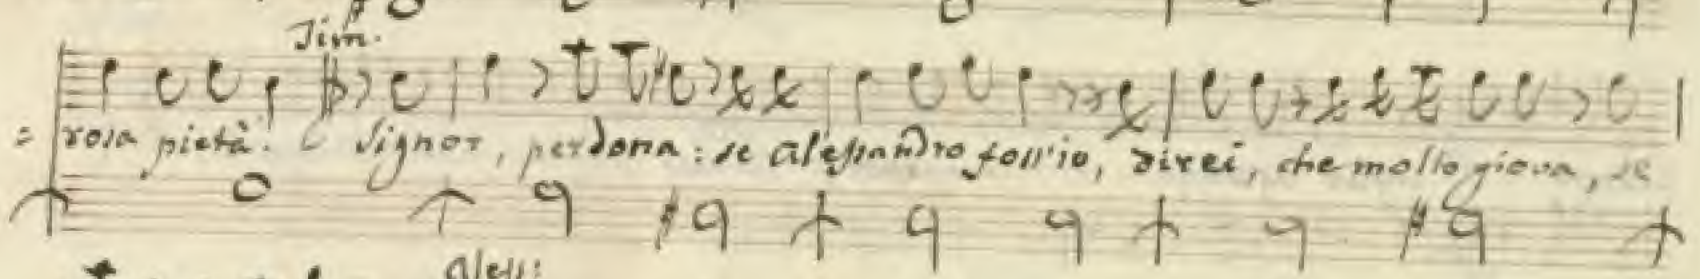 Tim.
= rosa pietà. Signor, perdona: se Alessandro foss'io, direi, che molto giova, se
Aless: